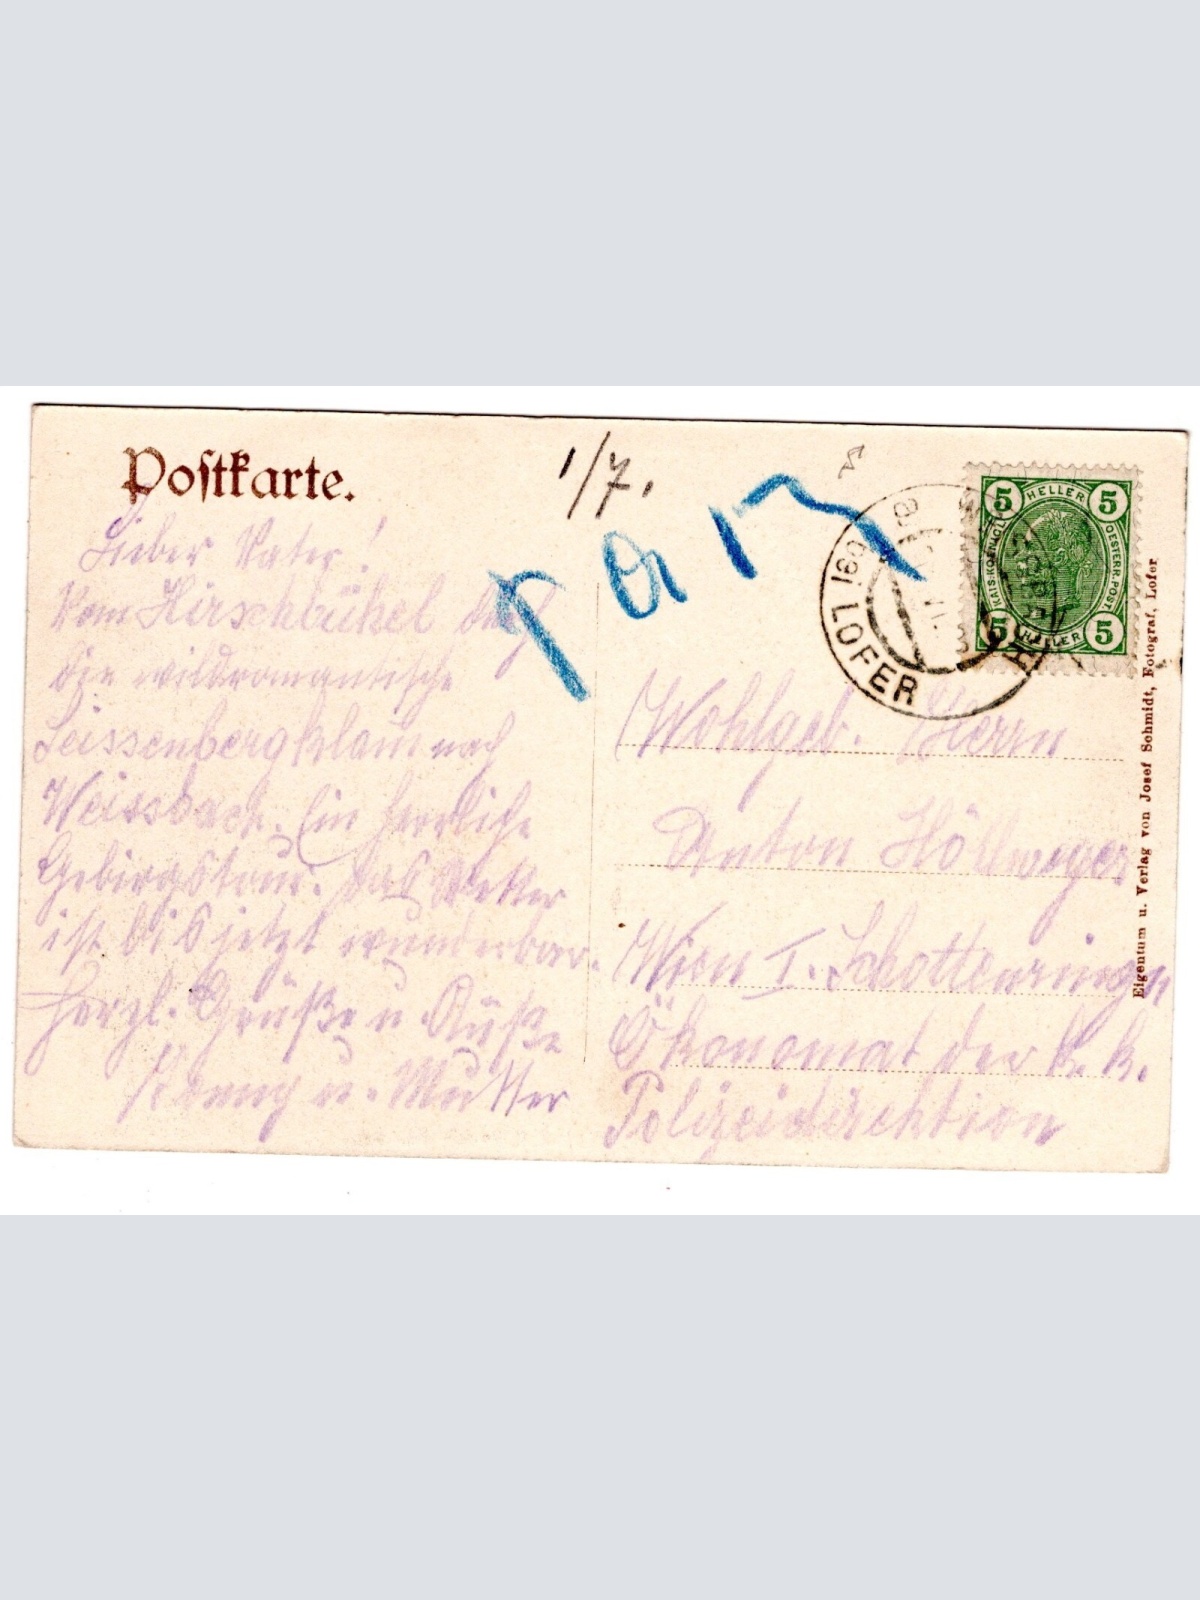 Postkarte.
1/7.
Lieber Vater!
Vom Hirschbühel durch
die wildromantische
Seissenbergklam nach
Weissbach. Ein herrliche
Gebirgstour. Das Wetter
ist bis jetzt wunderbar.
Herzl. Grüße u. Küße
u. Mutter
bei LOFER
5 HELLER 5
KAIS. KÖNIGL. OESTERR. POST.
5 HELLER 5
Wohlgeb. Herrn
Anton Höllweger
Wien I. Schottenring
Ökonomat der k. k.
Polizeidirektion
Eigentum u. Verlag von Josef Schmidt, Fotograf, Lofer